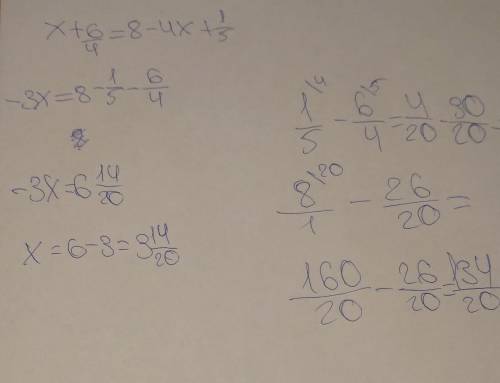 x + 6/4 = 8 - 4x + 1/5
-3x = 8 - 1/5 - 6/4
-3x = 6 14/20
x = 6 - 3 = 3 14/20
1/5 \4 - 6/4 \5 = 4/20 - 30/20
8/1 \20 - 26/20 =
160/20 - 26/20 = 134/20